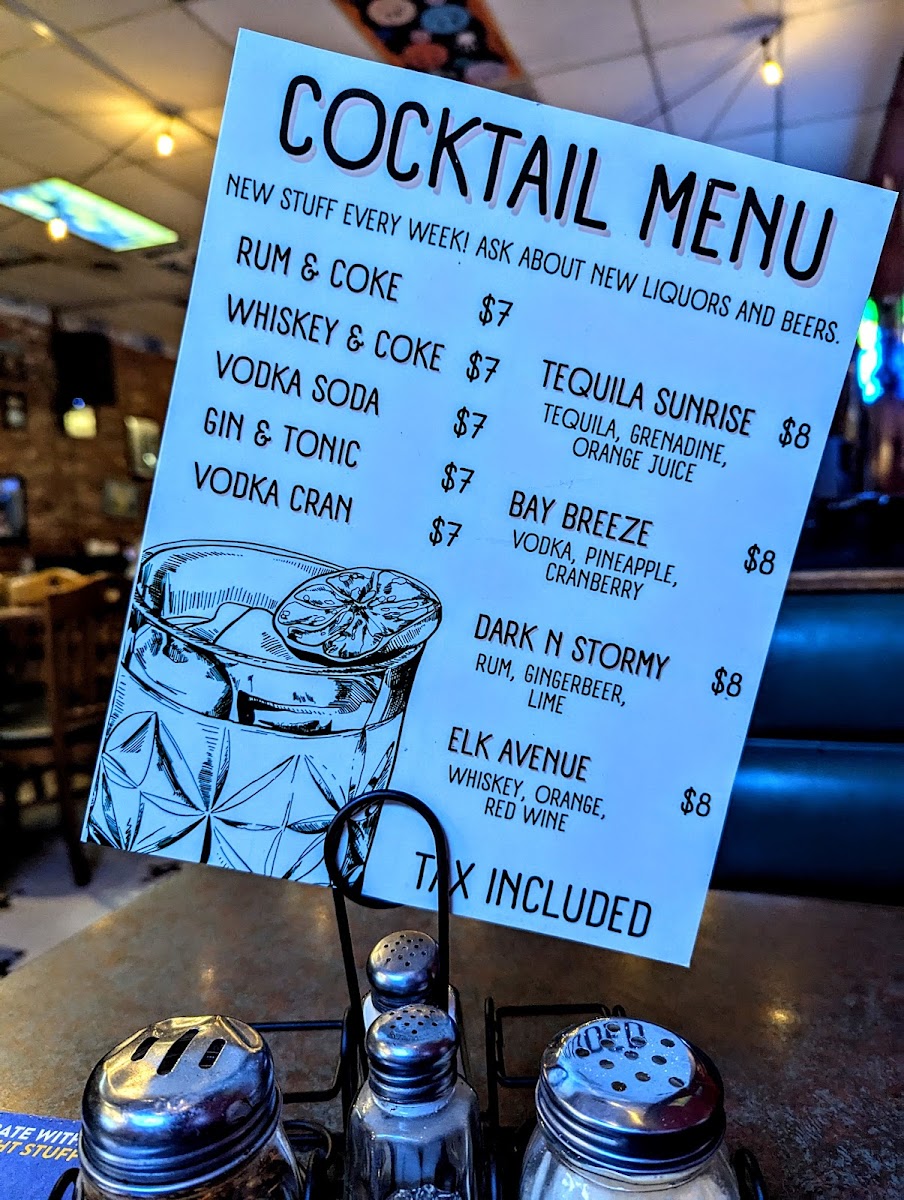 COCKTAIL MENU
NEW STUFF EVERY WEEK! ASK ABOUT NEW LIQUORS AND BEERS.
RUM & COKE $7
WHISKEY & COKE $7
VODKA SODA $7
GIN & TONIC $7
VODKA CRAN $7
TEQUILA SUNRISE $8
TEQUILA, GRENADINE,
ORANGE JUICE
BAY BREEZE $8
VODKA, PINEAPPLE,
CRANBERRY
DARK N STORMY $8
RUM, GINGERBEER,
LIME
ELK AVENUE $8
WHISKEY, ORANGE,
RED WINE
TAX INCLUDED
ATE WITH
HT STUFF